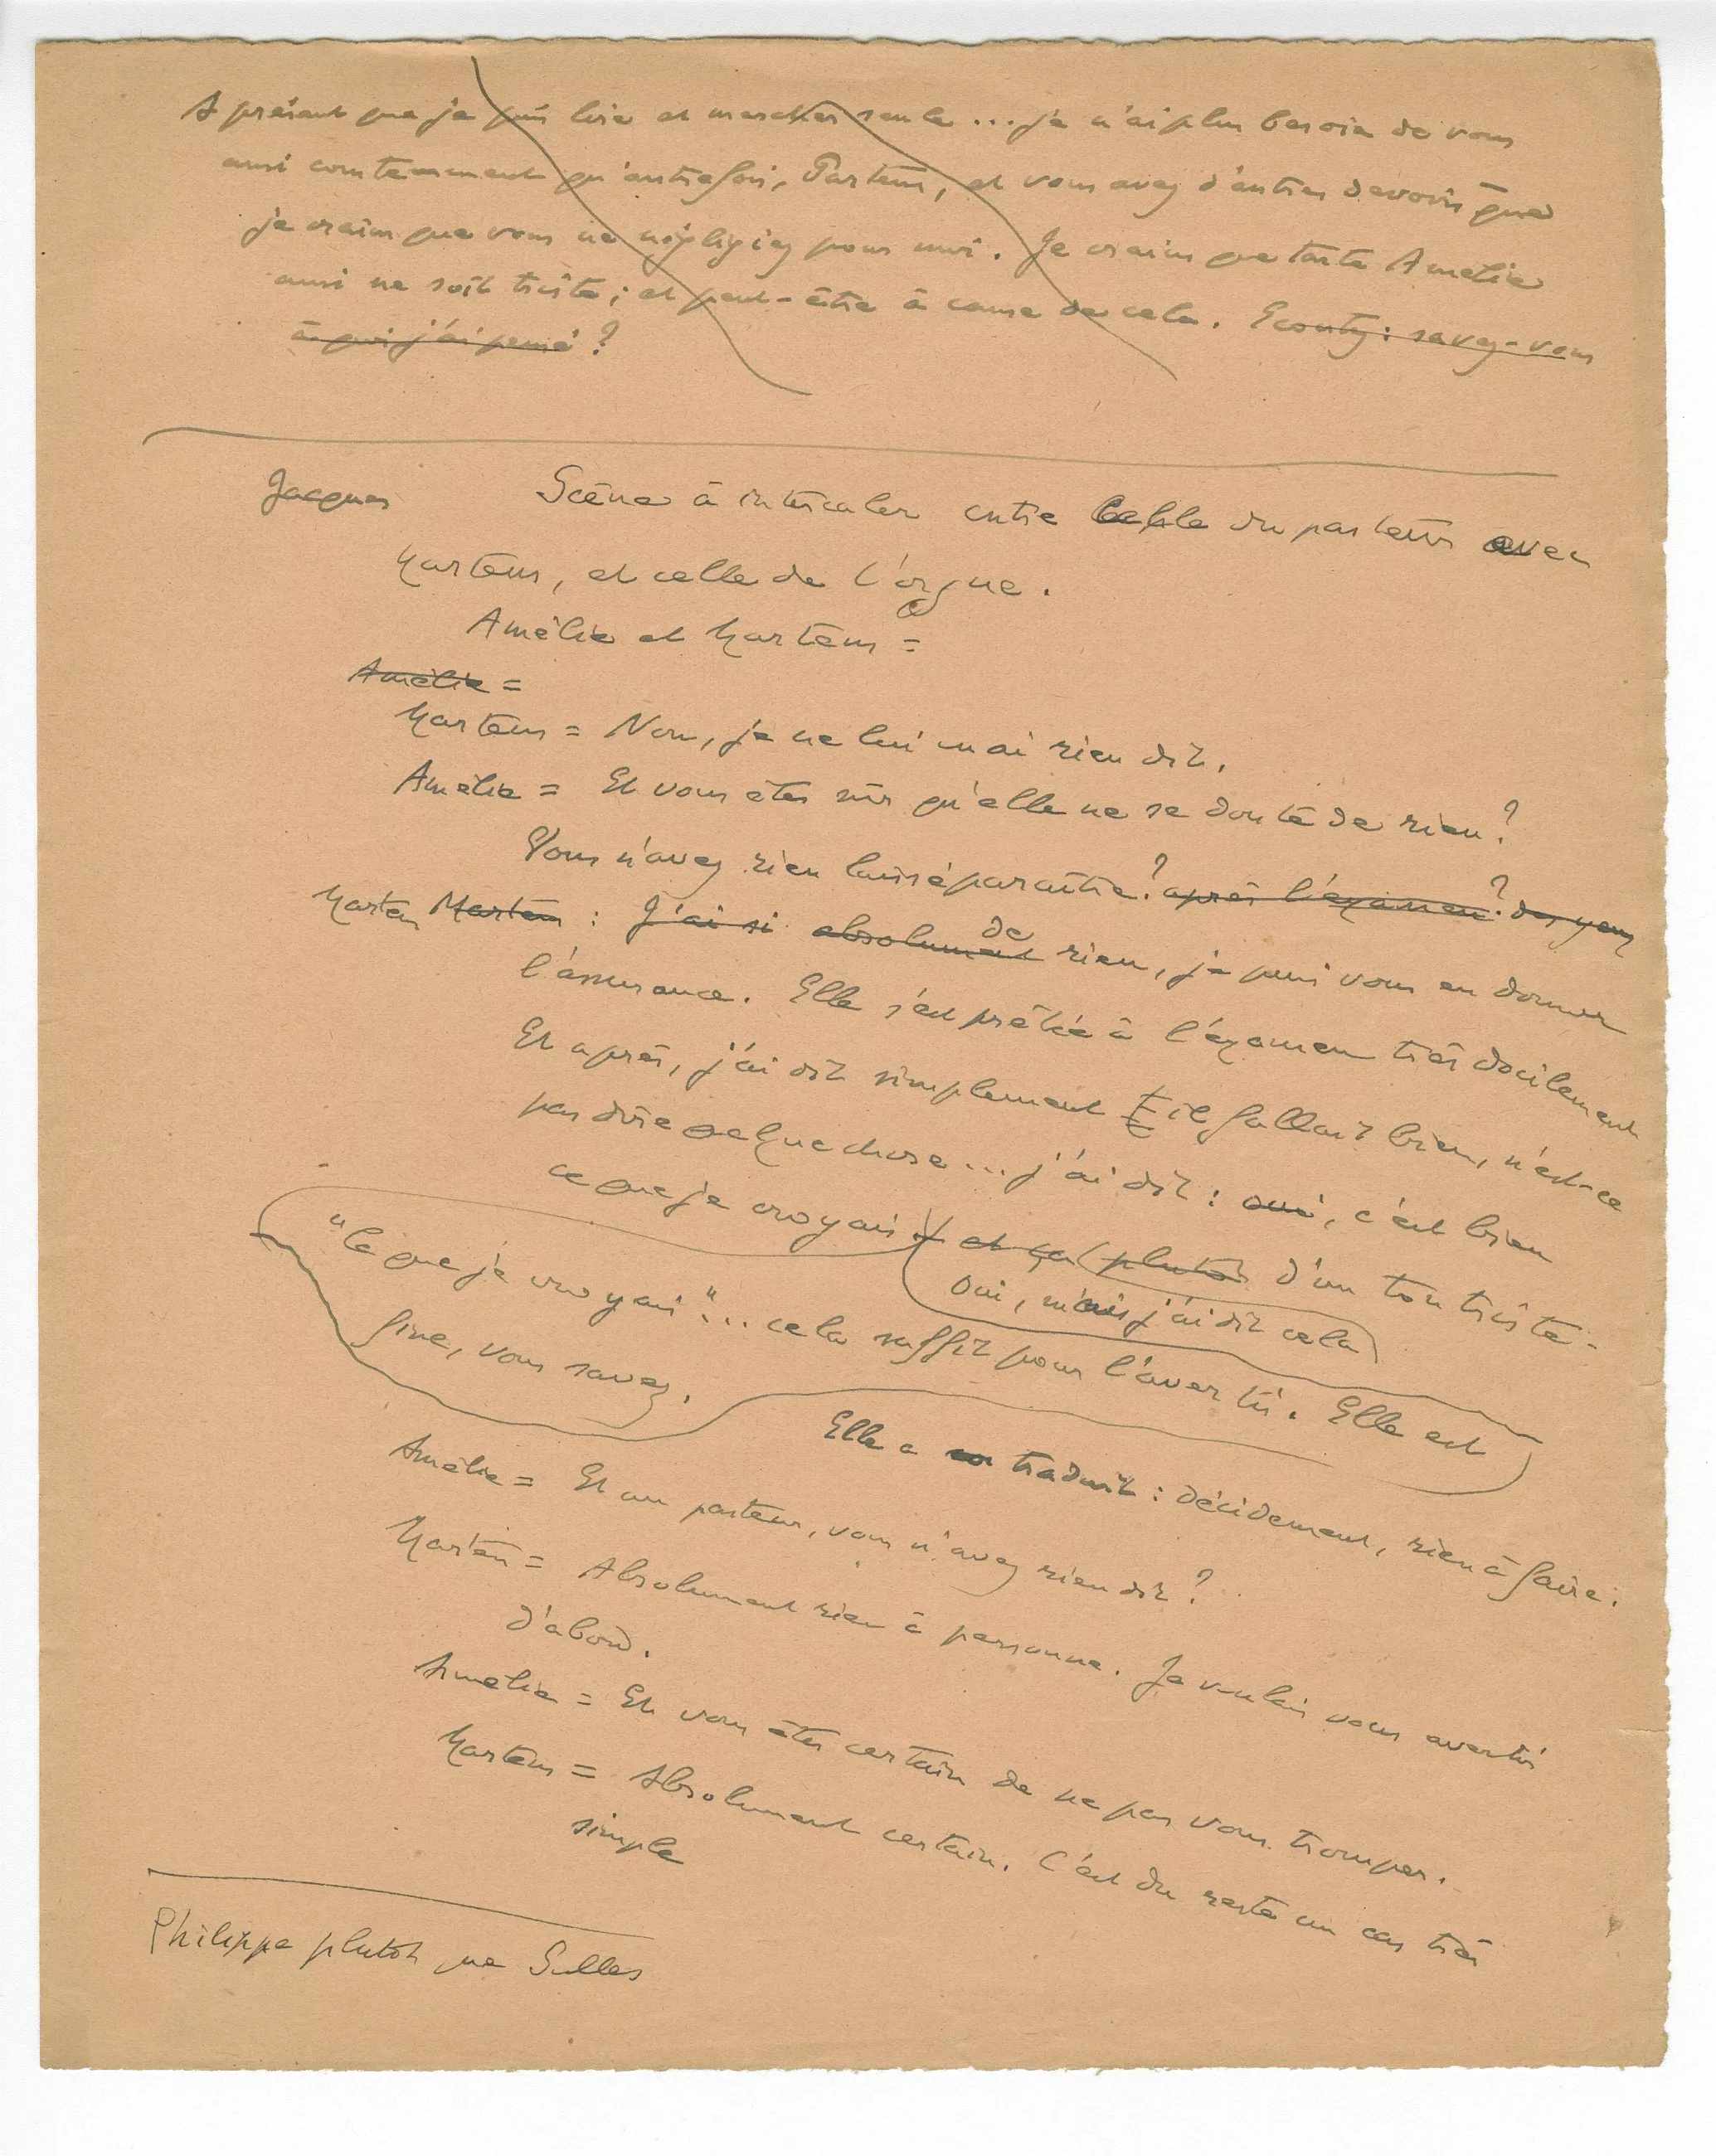 A présent que je puis lire et marcher seule ... je n'ai plus besoin de vous
aussi constamment qu'autrefois, Pasteur, et vous avez d'autres devoirs que
je crains que vous ne négligiez pour moi. Je crains que tante Amélie
aussi ne soit triste ; et peut-être à cause de cela. Ecoutez : savez-vous
à quoi j'ai pensé ?
Jacques Scène à intercaler entre celle du pasteur avec
Martens, et celle de l'orgue.
Amélie et Martens =
Amélie =
Martens = Non, je ne lui en ai rien dit.
Amélie = Et vous êtes sûr qu'elle ne se doute de rien ?
Vous n'avez rien laissé paraître ? après l'examen ? des yeux
Martens : J'ai si absolument de rien, je puis vous en donner
l'assurance. Elle s'est prêtée à l'examen très docilement
Et après, j'ai dit simplement il fallait bien, n'est-ce
pas dire quelque chose ... j'ai dit : oui, c'est bien
ce que je croyais. et ça plutôt d'un ton triste.
Oui, mais j'ai dit cela
"Ce que je croyais"... cela suffit pour l'avertir. Elle est
fine, vous savez.
Elle a traduit : décidément, rien à faire.
Amélie = Et au pasteur, vous n'avez rien dit ?
Martens = Absolument rien à personne. Je voulais vous avertir
d'abord.
Amélie = Et vous êtes certain de ne pas vous tromper.
Martens = Absolument certain. C'est du reste un cas très
simple
Philippe plutôt que Gilles